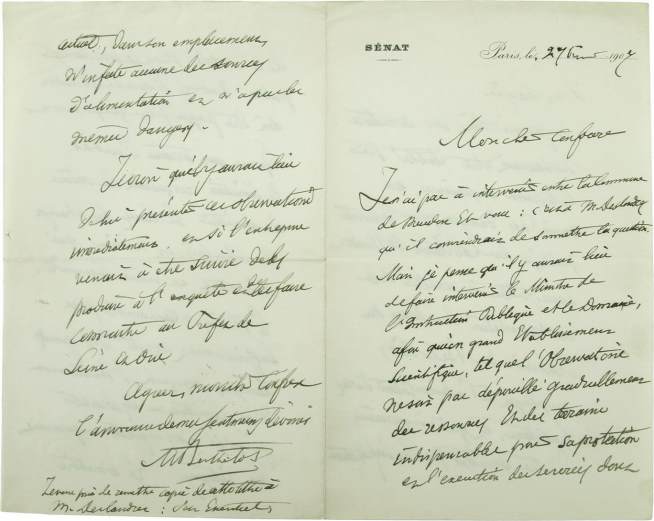 SÉNAT
Paris, le, 27 1907
Mon cher Confrère
Je n'ai pas à intervenir entre la Commune
de Meudon Et vous : c'est à M. Deslandres
qu'il conviendrait de soumettre la question.
Mais je pense qu'il y aurait lieu
de faire intervenir le Ministre de
l'Instruction Publique et le Domaine,
afin qu'un grand Etablissement
Scientifique, tel que l'Observatoire
ne soit pas dépouillé graduellement
des ressources Et des terrains
indispensables pour sa protection
et l'exécution des services dont
actuel, dans son emplacement,
n'infecte aucune des sources
d'alimentation et n'a pas les
mêmes dangers.
Je crois qu'il y aurait lieu
de lui présenter ces observations
immédiatement, et si l'entreprise
venait à être suivie de les
produire à l'enquête et de les faire
connaître au Préfet de
Seine et Oise.
Agréez, mon cher Confrère
l'assurance de mes sentiments dévoués
M Berthelot
Je vous prie de remettre copie de cette lettre à
M. Deslandres :